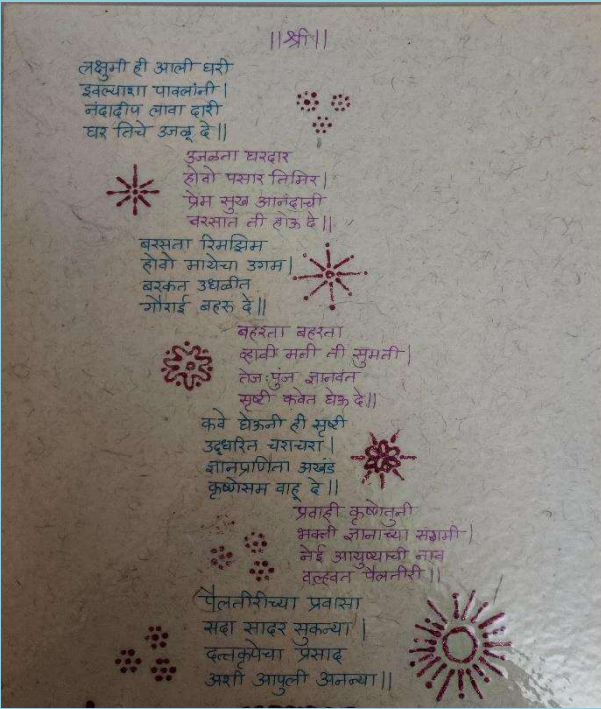 ||श्री||
लक्षुमी ही आली घरी
इवल्याशा पावलांनी |
नंदादीप लावा दारी
घर तिचे उजळू दे ||
उजळता घरदार
होवो पसार तिमिर |
प्रेम सुख आनंदाची
बरसात ती होऊ दे ||
बरसता रिमझिम
होवो मायेचा उगम |
बरकत उधळीत
गौराई बहरू दे ||
बहरता बहरता
व्हावी मनी ती सुमती |
तेज:पुंज ज्ञानवंत
सृष्टी कवेत घेऊ दे ||
कवे घेऊनी ही सृष्टी
उद्धरित चराचरा |
ज्ञानप्रणिता अखंड
कृष्णेसम वाहू दे ||
प्रवाही कृष्णेतुनी
भक्ती ज्ञानाच्या संगमी |
नेई आयुष्याची नाव
वल्हवत पैलतीरी ||
पैलतीरीच्या प्रवासा
सदा सादर सुकन्या |
दत्तकृपेचा प्रसाद
अशी आपुली अनन्या ||